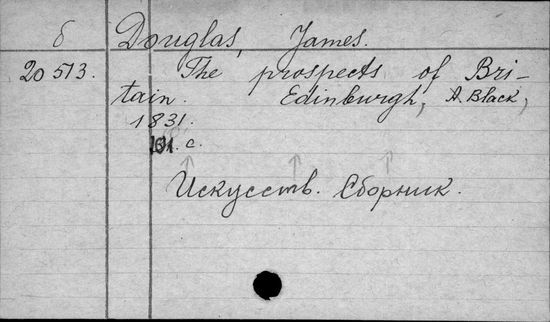 б Douglas, James.
20 513. The prospects of Bri-
tain. Edinburgh, A. Black,
1831.
с.
Искусств. Сборник.